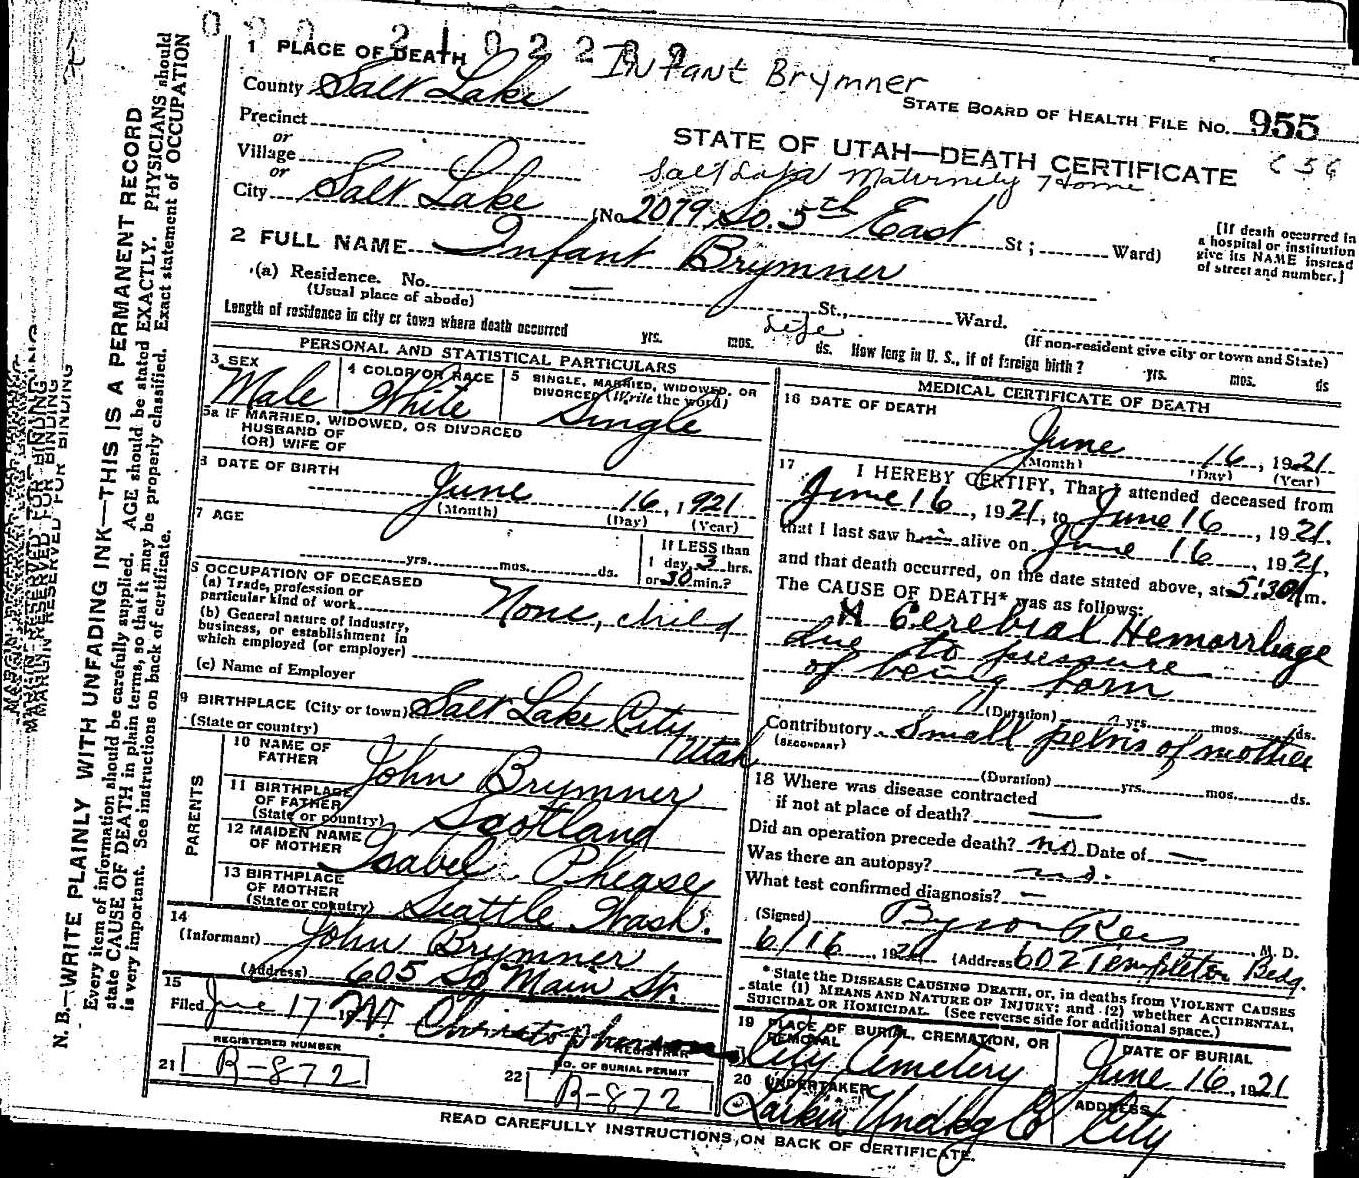 1 PLACE OF DEATH
Infant Brymner
County Salt Lake
STATE BOARD OF HEALTH FILE NO. 955
Precinct
or
Village
or
STATE OF UTAH—DEATH CERTIFICATE
Maternity Home
City Salt Lake (No. 2079 So. 5th East St; Ward)
[If death occurred in
a hospital or institution
give its NAME instead
of street and number.]
2 FULL NAME Infant Brymner
(a) Residence. No. — St., Ward.
(Usual place of abode)
(If non-resident give city or town and State)
Length of residence in city or town where death occurred yrs. mos. Life ds. How long in U. S., if of foreign birth? yrs. mos. ds
PERSONAL AND STATISTICAL PARTICULARS
3 SEX
Male
4 COLOR OR RACE
White
5 SINGLE, MARRIED, WIDOWED, OR
DIVORCED (Write the word)
Single
5a IF MARRIED, WIDOWED, OR DIVORCED
HUSBAND OF
(OR) WIFE OF
6 DATE OF BIRTH
June 16, 1921
(Month) (Day) (Year)
7 AGE
yrs. mos. ds.
If LESS than
1 day, 3 hrs.
or 30 min.?
8 OCCUPATION OF DECEASED
(a) Trade, profession or
particular kind of work None, child
(b) General nature of industry,
business, or establishment in
which employed (or employer)
(c) Name of Employer
9 BIRTHPLACE (City or town) Salt Lake City
(State or country) Utah
PARENTS
10 NAME OF
FATHER John Brymner
11 BIRTHPLACE
OF FATHER
(State or country) Scotland
12 MAIDEN NAME
OF MOTHER Isabel Phease
13 BIRTHPLACE
OF MOTHER
(State or country) Seattle Wash.
14
(Informant) John Brymner
(Address) 605 So Main St.
15
Filed June 17 Christopherson
REGISTRAR
REGISTERED NUMBER
21 B-872
NO. OF BURIAL PERMIT
22 B-872
MEDICAL CERTIFICATE OF DEATH
16 DATE OF DEATH
June 16, 1921
(Month) (Day) (Year)
17 I HEREBY CERTIFY, That I attended deceased from
June 16, 1921, to June 16, 1921.
that I last saw him alive on June 16, 1921,
and that death occurred, on the date stated above, at 5:30 m.
The CAUSE OF DEATH* was as follows:
Cerebral Hemorrhage
due to pressure
of being born
(Duration) yrs. mos. ds.
Contributory Small pelvis of mother
(SECONDARY)
(Duration) yrs. mos. ds.
18 Where was disease contracted
if not at place of death? —
Did an operation precede death? no Date of —
Was there an autopsy? no.
What test confirmed diagnosis? —
(Signed) Byron Rees M. D.
6/16, 1921 (Address 602 Templeton Bldg.
* State the DISEASE CAUSING DEATH, or, in deaths from VIOLENT CAUSES
state (1) MEANS AND NATURE OF INJURY; and (2) whether ACCIDENTAL,
SUICIDAL OR HOMICIDAL. (See reverse side for additional space.)
19 PLACE OF BURIAL, CREMATION, OR
REMOVAL
City Cemetery
DATE OF BURIAL
June 16, 1921
20 UNDERTAKER
Larkin Undkg Co
ADDRESS
City
READ CAREFULLY INSTRUCTIONS ON BACK OF CERTIFICATE.
MARGIN RESERVED FOR BINDING
N. B.—WRITE PLAINLY WITH UNFADING INK—THIS IS A PERMANENT RECORD
Every item of information should be carefully supplied. AGE should be stated EXACTLY. PHYSICIANS should
state CAUSE OF DEATH in plain terms, so that it may be properly classified. Exact statement of OCCUPATION
is very important. See instructions on back of certificate.